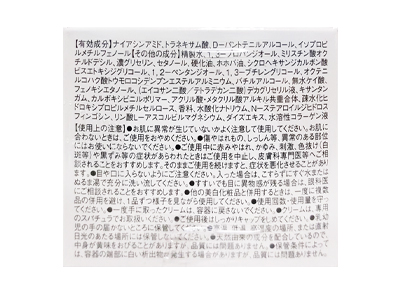 【有効成分】ナイアシンアミド、トラネキサム酸、D-パントテニルアルコール、イソプロピ
ルメチルフェノール【その他の成分】精製水、1,3-プロパンジオール、ミリスチン酸オ
クチルドデシル、濃グリセリン、セタノール、硬化油、ホホバ油、シクロヘキサンジカルボン酸
ビスエトキシジグリコール、1,2-ペンタンジオール、1,3-ブチレングリコール、オクテニ
ルコハク酸トウモロコシデンプンエステルアルミニウム、バチルアルコール、無水ケイ酸、
フェノキシエタノール、(エイコサン二酸/テトラデカン二酸)デカグリセリル液、キサン
タンガム、カルボキシビニルポリマー、アクリル酸・メタクリル酸アルキル共重合体、疎水化ヒ
ドロキシプロピルメチルセルロース、香料、水酸化ナトリウム、N-ステアロイルジヒドロス
フィンゴシン、リン酸L-アスコルビルマグネシウム、ダイズエキス、水溶性コラーゲン液
【使用上の注意】●お肌に異常が生じていないかよく注意して使用してください。お肌に
合わないときは、ご使用をおやめください。●傷やはれもの、しっしん等、異常のある部位
にはお使いにならないでください。●ご使用中に赤みやはれ、かゆみ、刺激、色抜け(白
斑等)や黒ずみ等の症状があらわれたときは使用を中止し、皮膚科専門医等へご相
談されることをおすすめします。そのまま使用を続けますと、症状を悪化させることがあり
ます。●目や口に入らないようにご注意ください。入った場合は、こすらずすぐに水または
ぬるま湯で充分に洗い流してください。●すすいでも目に異物感が残る場合は、眼科医
にご相談ください。●他の美白化粧品と併用するときは、一度に複数
品の併用を避け、1品ずつ様子を見ながら使用してください。●使用回数、使用量を守っ
てください。●一度手に取ったクリームは、容器に戻さないでください。●クリームは、専用
のスパチュラでお取りください。●ご使用後は必ずしっかりキャップをしめてください。●乳幼
児の手の届かないところに保管してください。●極端に高温又は低温、多湿の場所、または直射
日光のあたる場所には保管しないでください。●天然由来の成分を配合しているので、
中身が黄味をおびることがありますが、品質には問題ありません。●保管条件によって
は、容器の縁部に白い析出物が出現することがありますが、品質に問題ありません。